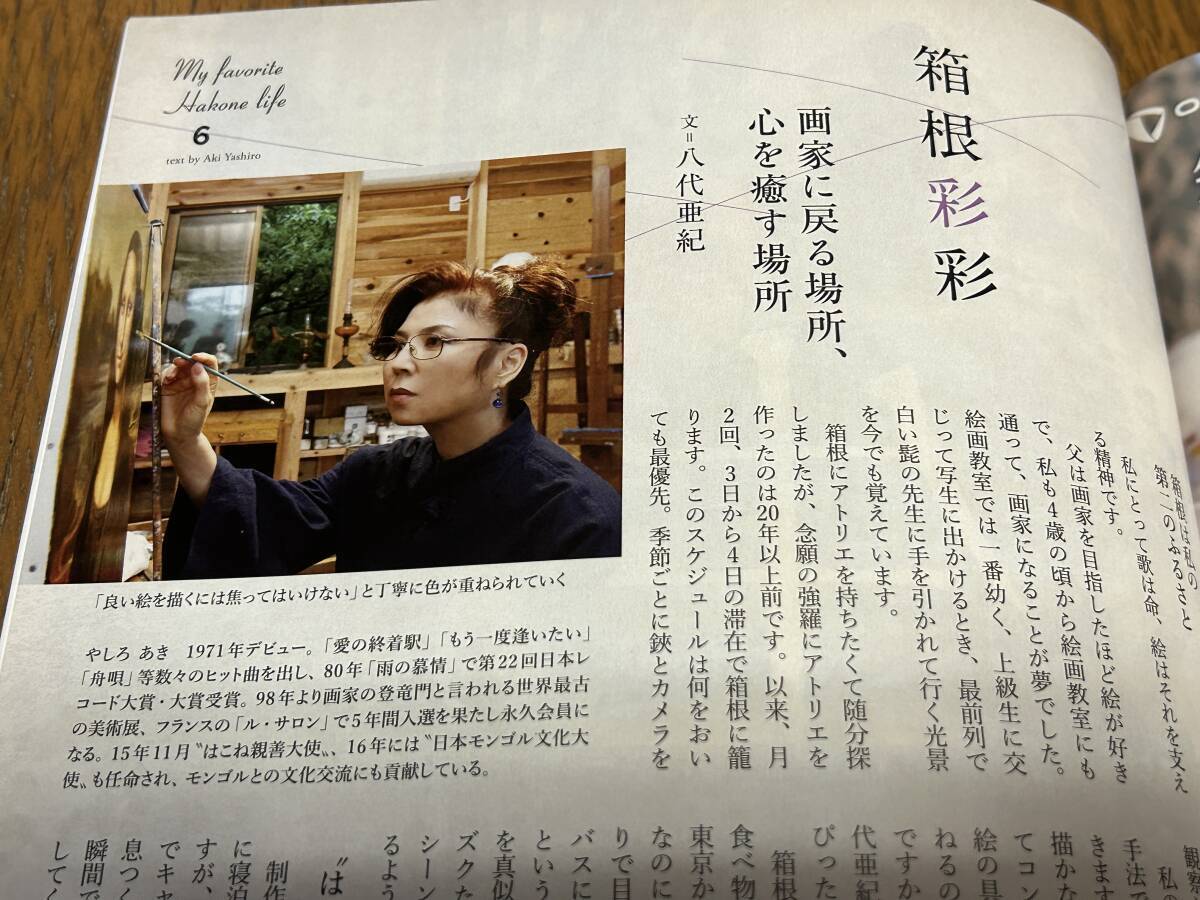 My favorite
Hakone life
6
text by Aki Yashiro
箱根彩彩
画家に戻る場所、
心を癒す場所
文=八代亜紀
「良い絵を描くには焦ってはいけない」と丁寧に色が重ねられていく
やしろ あき 1971年デビュー。「愛の終着駅」「もう一度逢いたい」
「舟唄」等数々のヒット曲を出し、80年「雨の慕情」で第22回日本レ
コード大賞・大賞受賞。98年より画家の登竜門と言われる世界最古
の美術展、フランスの「ル・サロン」で5年間入選を果たし永久会員に
なる。15年11月〝はこね親善大使〟、16年には〝日本モンゴル文化大
使〟も任命され、モンゴルとの文化交流にも貢献している。
箱根は私の
第二のふるさと
私にとって歌は命、絵はそれを支え
る精神です。
父は画家を目指したほど絵が好き
で、私も4歳の頃から絵画教室にも
通って、画家になることが夢でした。
絵画教室では一番幼く、上級生に交
じって写生に出かけるとき、最前列で
白い髭の先生に手を引かれて行く光景
を今でも覚えています。
箱根にアトリエを持ちたくて随分探
しましたが、念願の強羅にアトリエを
作ったのは20年以上前です。以来、月
2回、3日から4日の滞在で箱根に籠
ります。このスケジュールは何をおい
ても最優先。季節ごとに鋏とカメラを
観察
私の
手法で
きます
描かな
てコン
絵の具
ねるの
ですか
代亜紀
ぴった
箱根
食べ物
東京か
なのに
りで目
バスに
という
を真似
ズクた
シーン
るよう
〝は
制作
に寝泊
すが、
でキャ
息つく
瞬間で
してく